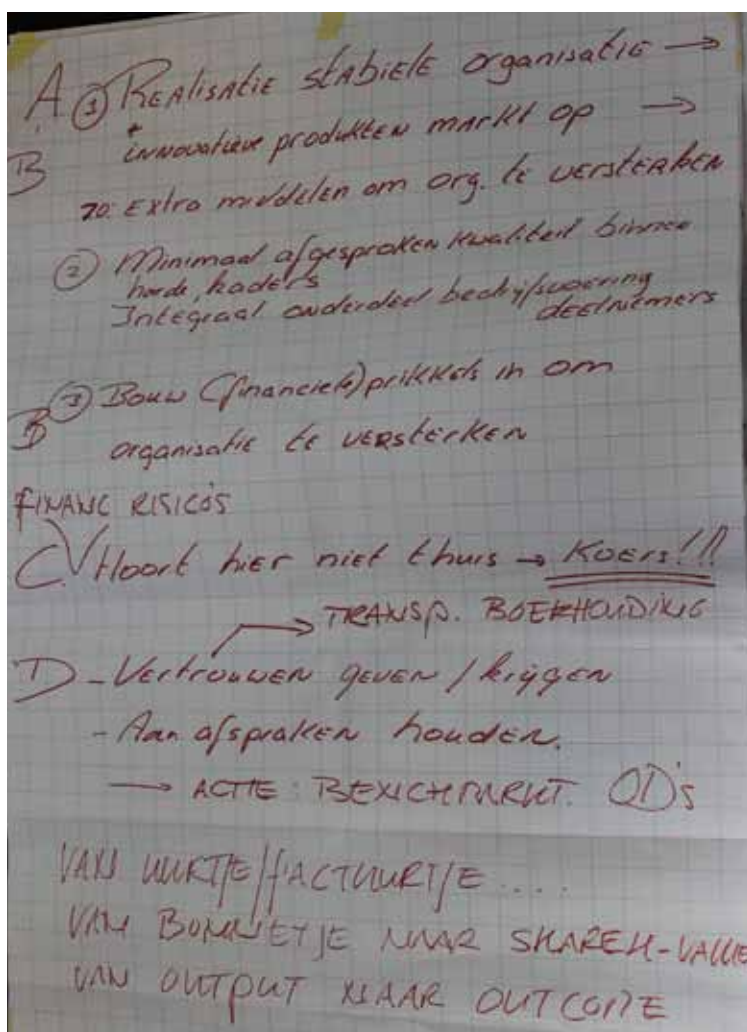 A. ① Realisatie stabiele organisatie →
+
innovatieve produkten markt op →
B
zo: Extra middelen om org. te versterken
② Minimaal afgesproken kwaliteit binnen
harde, kaders
Integraal onderdeel bedrijfsvoering
deelnemers
③ Bouw (financiele) prikkels in om
B
organisatie te versterken
FINANC RISICO'S
C. Hoort hier niet thuis → Koers!!!
→ TRANSP. BOEKHOUDING
D - Vertrouwen geven / krijgen
- Aan afspraken houden.
→ ACTIE: OD's
VAN UURTJE/FACTUURTJE ....
VAN BONNETJE NAAR SHAREH-VALUE
VAN OUTPUT NAAR OUTCOME